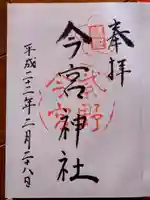 奉拝
今宮神社
平成二十二年二月二十八日